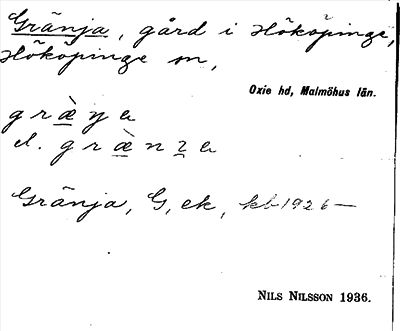 Gränja, gård i Hököpinge,
Hököpinge sn,
Oxie hd, Malmöhus län.
el.
Gränja, G, ek, kb 1926—
NILS NILSSON 1936.